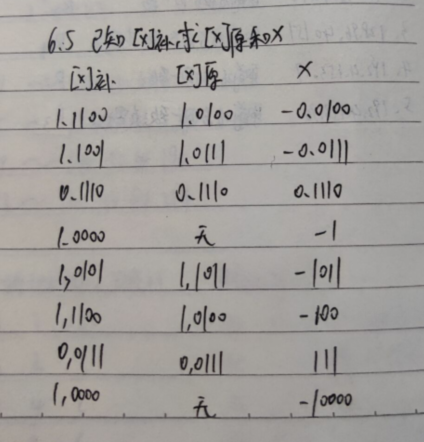 6.5 已知[X]补,求[X]原和X
[X]补 [X]原 X
1.1100 1.0100 -0.0100
1.1001 1.0111 -0.0111
0.1110 0.1110 0.1110
1.0000 无 -1
1,0101 1,1011 -1011
1,1100 1,0100 -100
0,0111 0,0111 111
1,0000 无 -10000